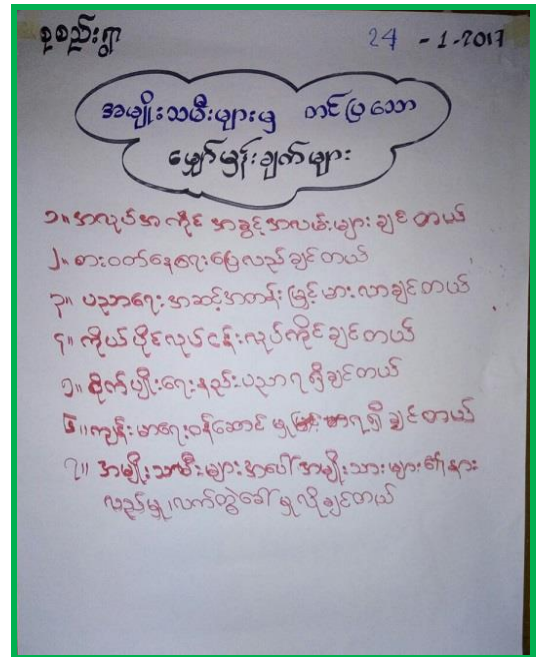 စုစည်းရွာ 24 - 1 - 2017
အမျိုးသမီးများမှ တင်ပြသော
မျှော်မှန်းချက်များ
၁။ အလုပ်အကိုင် အခွင့်အလမ်းများ ချင်တယ်
၂။ စားဝတ်နေရေးပြေလည်ချင်တယ်
၃။ ပညာရေး အဆင့်အတန်းမြင့်မားလာချင်တယ်
၄။ ကိုယ်ပိုင်လုပ်ငန်းလုပ်ကိုင်ချင်တယ်
၅။ စိုက်ပျိုးရေးနည်းပညာရရှိချင်တယ်
၆။ ကျန်းမာရေးဝန်ဆောင်မှုရရှိချင်တယ်
၇။ အမျိုးသမီးများအပေါ် အမျိုးသားများ၏နား
လည်မှု၊ လက်တွဲခေါ်မှုလိုချင်တယ်